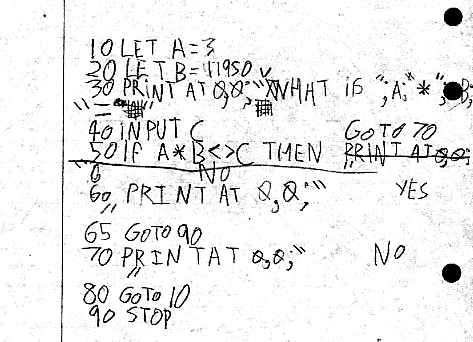 10 LET A=3
20 LET B=11950
30 PRINT AT 0,0;"WHAT IS ";A;"*";B;
"=
40 INPUT C GOTO 70
50 IF A*B<>C THEN PRINT AT 0,0;
NO
60 PRINT AT 0,0;" YES
"
65 GOTO 90
70 PRINT AT 0,0;" NO
"
80 GOTO 10
90 STOP